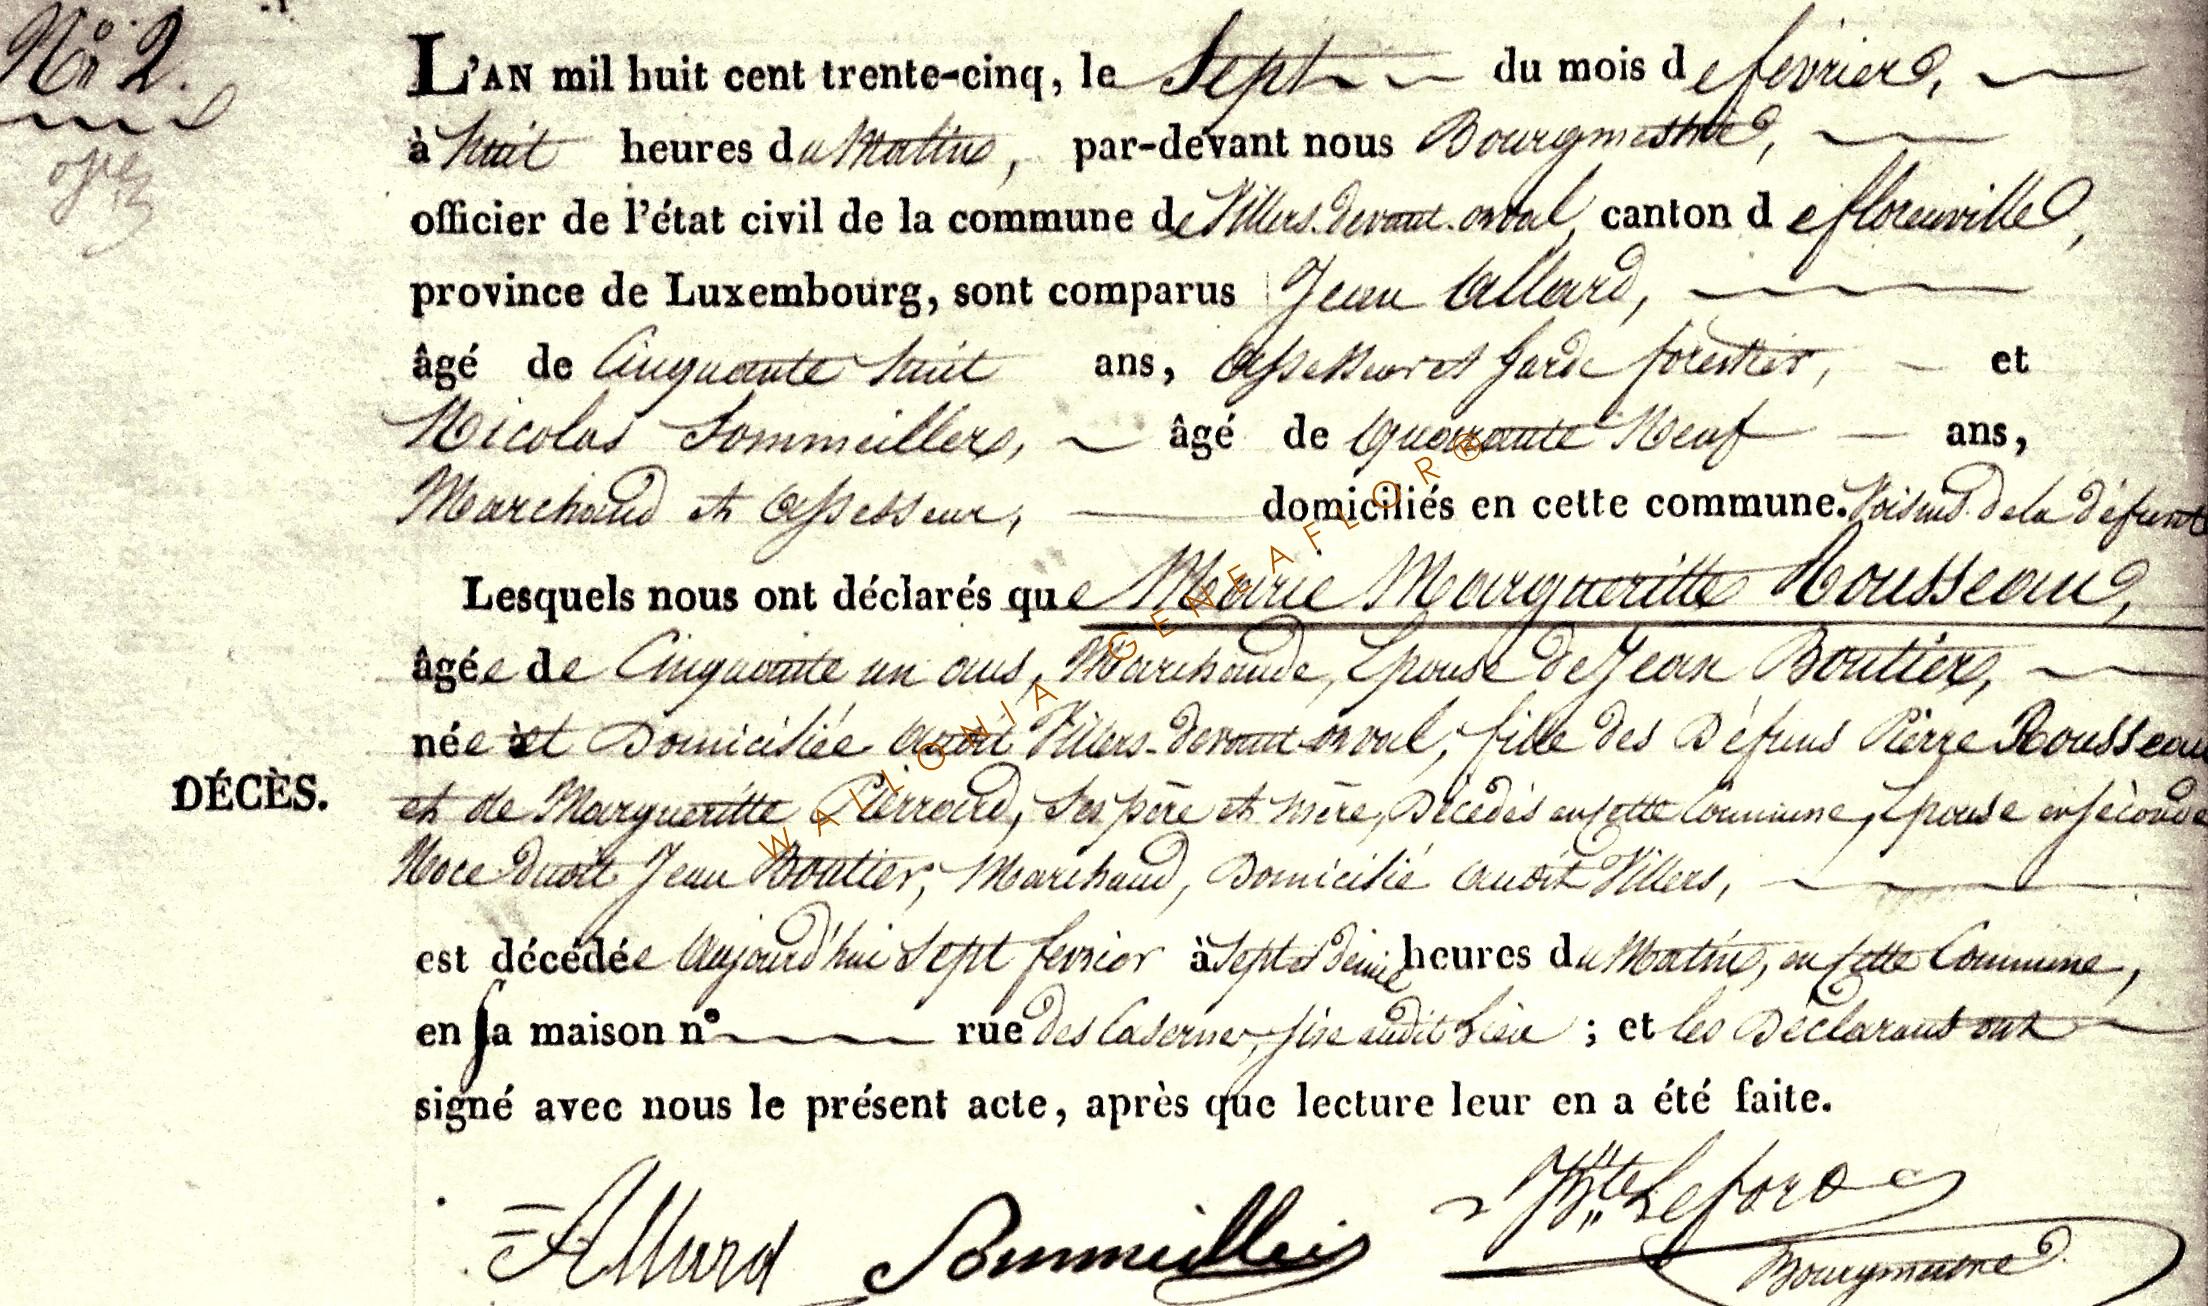 N° 2.
L'AN mil huit cent trente-cinq, le Sept du mois de fevrier,
à huit heures du Matin, par-devant nous Bourgmestre,
officier de l'état civil de la commune de Villers-devant-orval, canton de florenville,
province de Luxembourg, sont comparus Jean Allard,
âgé de Cinquante huit ans, assesseur et garde forestier, et
Nicolas Sommeillier, âgé de Quarante Neuf ans,
Marchand et assesseur, domiciliés en cette commune. Voisins de la défunte
Lesquels nous ont déclarés que Marie Margueritte Rousseau,
âgée de Cinquante un ans, Marchande, Epouse de Jean Boutier,
née et Domiciliée audit Villers-devant-orval, fille des Défuns Pierre Rousseau
et de Margueritte Pierrard, ses père et mère, Décédés en cette Commune, Epouse en séconde
Noce dudit Jean Boutier, Marchand, Domicilié audit Villers,
DÉCÈS.
est décédée aujourd'hui sept fevrier à sept et demie heures du Matin, en cette Commune,
en sa maison n° rue des Caserne, sise audit Lieu ; et les Déclarans ont
signé avec nous le présent acte, après que lecture leur en a été faite.
Allard Sommeillier
Bourgmestre
WALLONIA GENEAFLOR®